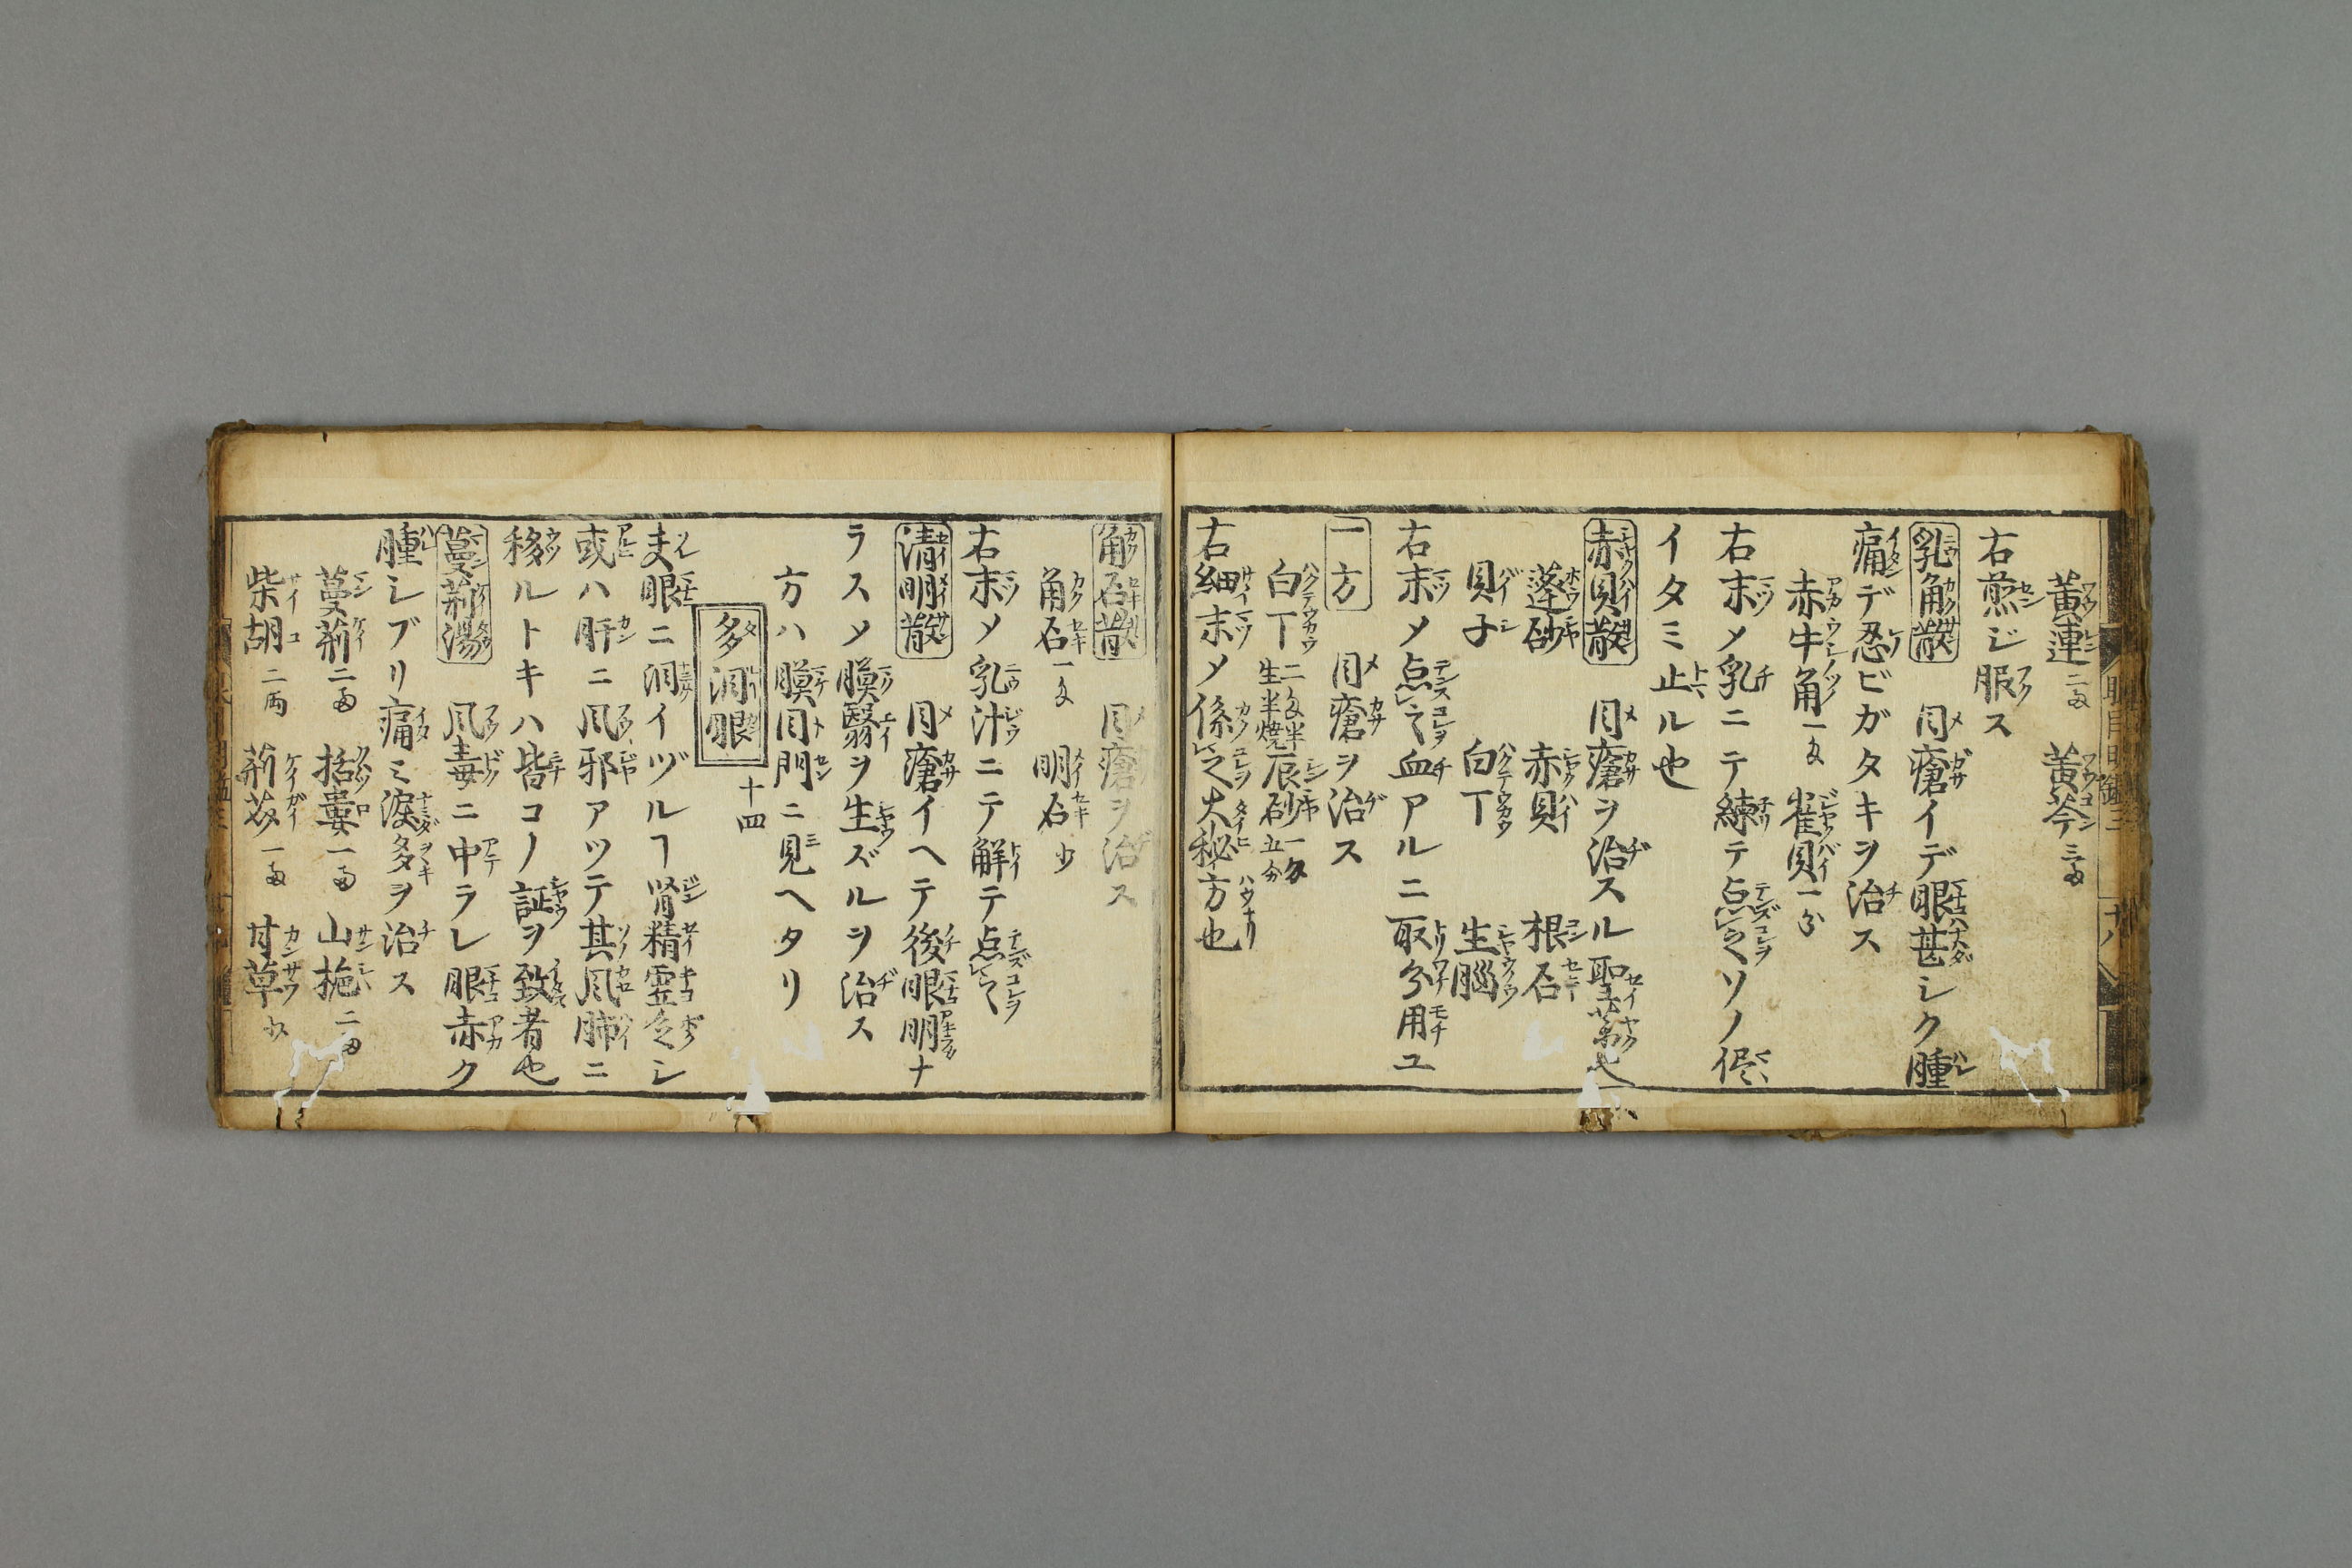 黄連二匁 黄芩三匁
右煎ジ服ス
乳角散 目瘡イデ眼甚シク腫
痛デ忍ビガタキヲ治ス
赤牛角一匁 雀貝一分
右末メ乳ニテ練テ点之ソノ侭
イタミ止ル也
赤貝散 目瘡ヲ治スル聖薬也
蓬砂 赤貝 根石
貝子 白丁 生脳
右末メ点之血アルニ取分用ユ
一方 目瘡ヲ治ス
白丁二匁半生半焼 辰砂一匁五分
右細末メ係之大秘方也
角石散 目瘡ヲ治ス
角石一匁 明石少
右末メ乳汁ニテ解テ点之
清明散 目瘡イヘテ後眼明ナ
ラスメ膜翳ヲ生ズルヲ治ス
方ハ膜目門ニ見ヘタリ
多泪眼 十四
夫眼ニ泪イヅルヿ腎精虚乏シ
或ハ肝ニ風邪アツテ其風肺ニ
移ルトキハ皆コノ証ヲ致者也
蔓荊湯 風毒ニ中ラレ眼赤ク
腫シブリ痛ミ涙多ヲ治ス
蔓荊二匁 括蔞一匁 山梔二匁
柴胡二両 荊芥一匁 甘草少